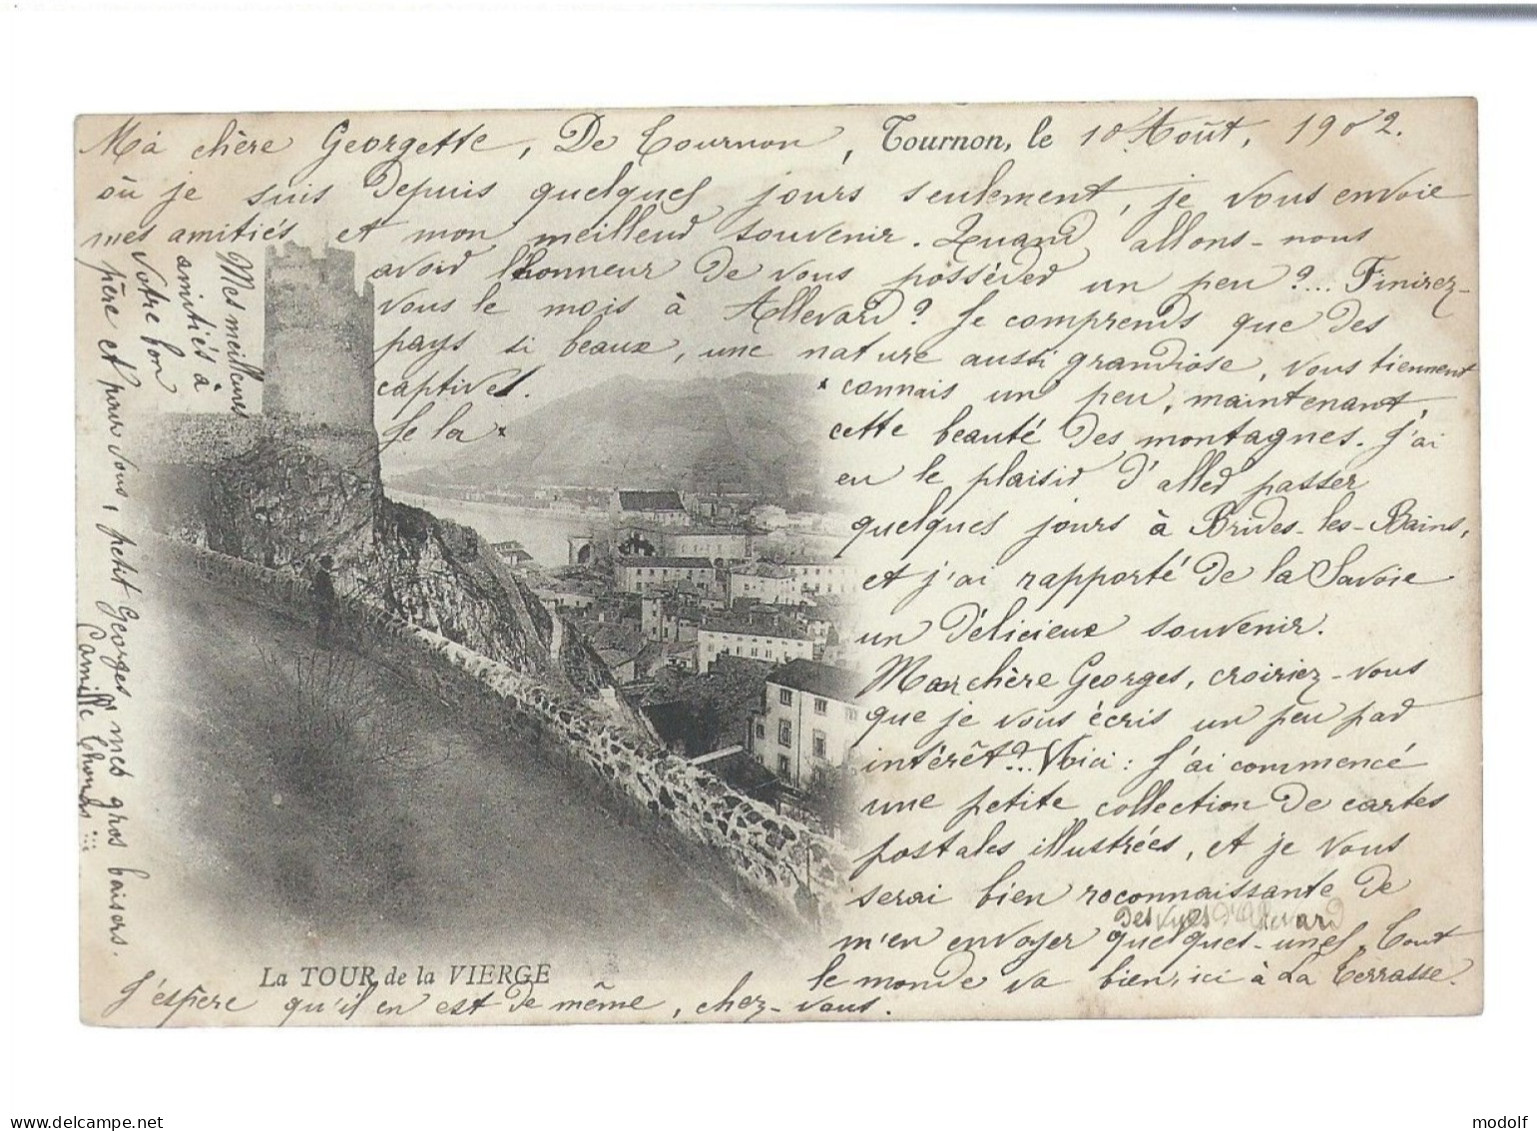 Ma chère Georgette, De Tournon, Tournon, le 10 Août, 1902.
où je suis depuis quelques jours seulement, je vous envoie
mes amitiés et mon meilleur souvenir. Quand allons-nous
avoir l'honneur de vous posséder un peu ?... Finirez-
vous le mois à Allevard ? Je comprends que des
pays si beaux, une nature aussi grandiose, vous tiennent
captives.
Je la x
x connais un peu, maintenant,
cette beauté des montagnes. J'ai
eu le plaisir d'aller passer
quelques jours à Brides-les-Bains,
et j'ai rapporté de la Savoie
un délicieux souvenir.
Ma chère Georges, croiriez-vous
que je vous écris un peu par
intérêt ?.. Voici : J'ai commencé
une petite collection de cartes
postales illustrées, et je vous
serai bien reconnaissante de
des vues d'Allevard
m'en envoyer quelques-unes. Tout
le monde va bien, ici à La Terrasse.
La TOUR de la VIERGE
J'espère qu'il en est de même, chez-vous.
Mes meilleures
amitiés à
votre bon
père et pour vous, petit Georges, mes gros baisers.
Camille
modolf
delcampe.net